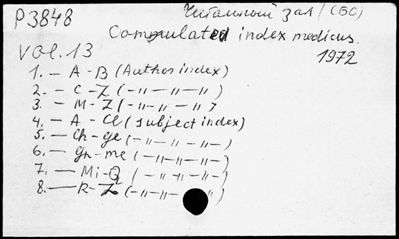 P3848 Читальный зал / (БС)
Commulated index medicus.
1972
Vol. 13
1. — A - B (Author index)
2. — C - Z (-"-"-"-"-)
3. — M - Z (-"-"-"-")
4. — A - Cl (subject index)
5. — Ch - ge (-"-"-"-"-)
6. — gh - me (-"-"-"-"-)
7. — Mi - Q (-"-"-"-"-)
8. — R - Z (-"-"-"-)